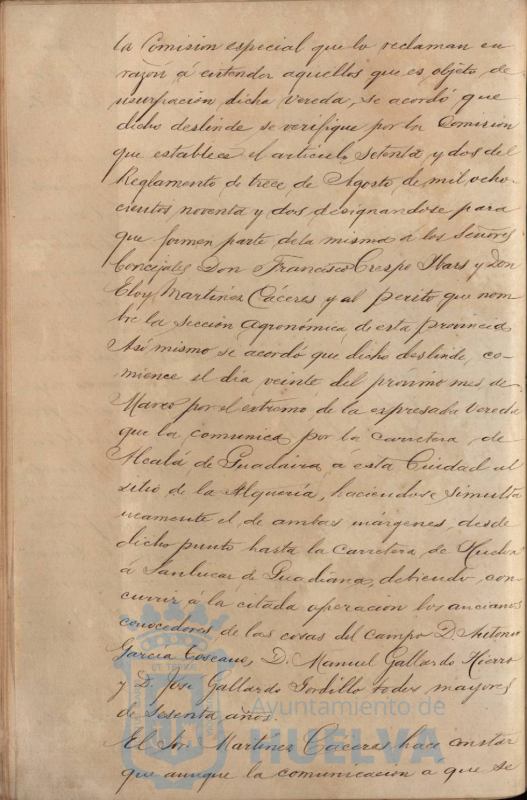 la Comision especial que lo reclaman en
razón á entender aquellos que es objeto de
usurpación dicha vereda, se acordó que
dicho deslinde se verifique por la Comisión
que establece el articulo setenta y dos del
Reglamento de trece de Agosto de mil ocho-
cientos noventa y dos designandose para
que formen parte de la misma á los Señores
Concejales Don Francisco Crespo Ibars y Don
Eloy Martinez Cáceres y al perito que nom-
bre la sección agronómica de esta provincia
Asi mismo se acordó que dicho deslinde, co-
mience el dia veinte del próximo mes de
Marzo por el extremo de la expresada vereda
que la comunica por la carretera de
Alcalá de Guadaira á esta Ciudad al
sitio de la Alquería, haciendose simulta
neamente el de ambas márgenes, desde
dicho punto hasta la carretera de Huelva
á Sanlucar de Guadiana, debiendo con-
currir á la citada operacion los ancianos
conocedores de las cosas del campo D. Antonio
García Toscano, D. Manuel Gallardo Hierro
y D. José Gallardo Gordillo todos mayores
de sesenta años.
El Sor. Martinez Cáceres hace constar
que aunque la comunicacion a que se
Ayuntamiento de
HUELVA